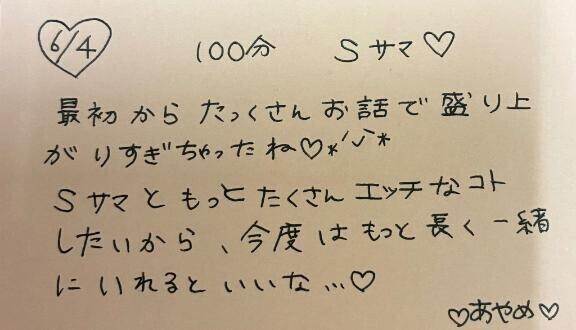 6/4 100分 Sサマ♡
最初からたっくさんお話で盛り上
がりすぎちゃったね♡*ˊᵕˋ*
Sサマともっとたくさんエッチなコト
したいから、今度はもっと長く一緒
にいれるといいな...♡
♡あやめ♡